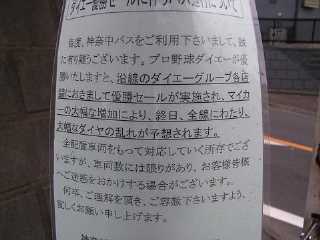 ダイエー優勝セールに伴うバス運行について
毎度、神奈中バスをご利用下さいまして、誠
に有り難うございます。プロ野球ダイエーが優
勝いたしますと、沿線のダイエーグループ各店
舗におきまして優勝セールが実施され、マイカ
ーの大幅な増加により、終日、全線にわたり、
大幅なダイヤの乱れが予想されます。
全配置車両をもって対応していく所存でござ
いますが、車両数には限りがあり、お客様皆様
へご迷惑をおかけする場合がございます。
何卒、ご理解を頂き、ご容赦下さいますよう、
宜しくお願い申し上げます。
神奈